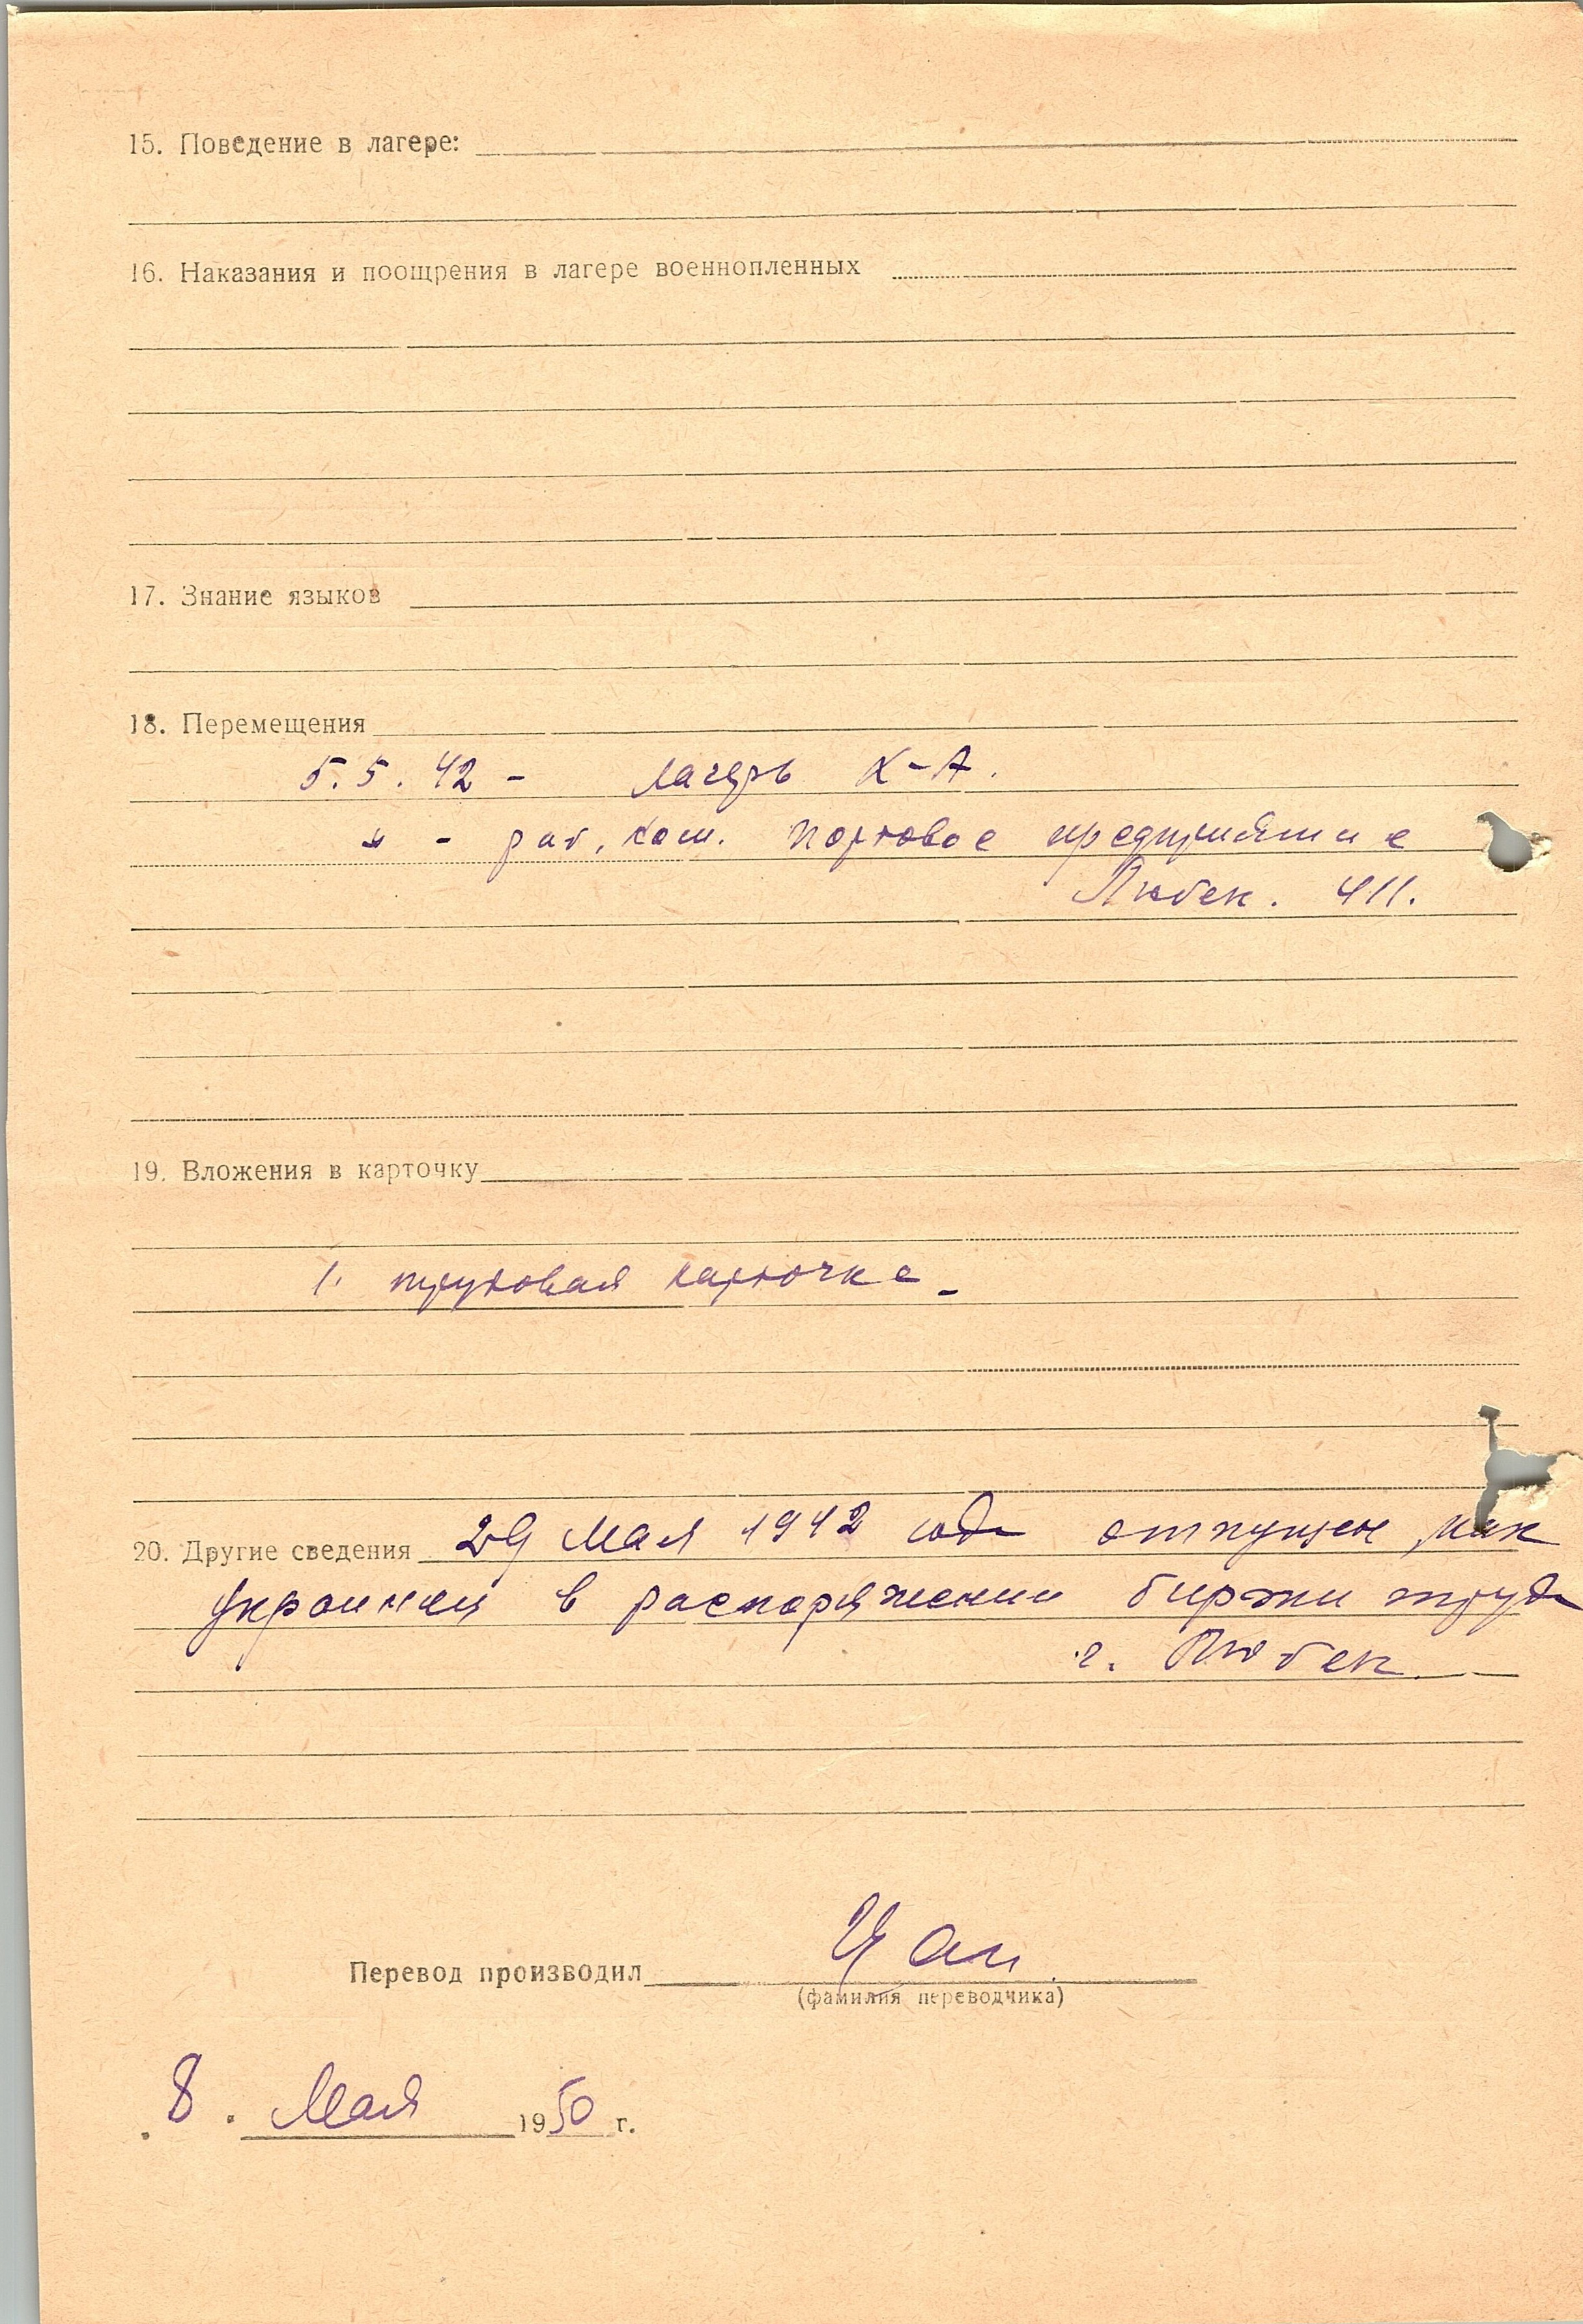 15. Поведение в лагере:
16. Наказания и поощрения в лагере военнопленных
17. Знание языков
18. Перемещения
5.5.42 - лагерь X-A.
" - раб. ком. Портовое предприятие
Любек. 411.
19. Вложения в карточку
1. трудовая карточка
20. Другие сведения 29 мая 1942 года отпущен, как
украинец в распоряжении биржи труда
г. Любек
Перевод производил Цан
(фамилия переводчика)
8. Мая 1950 г.